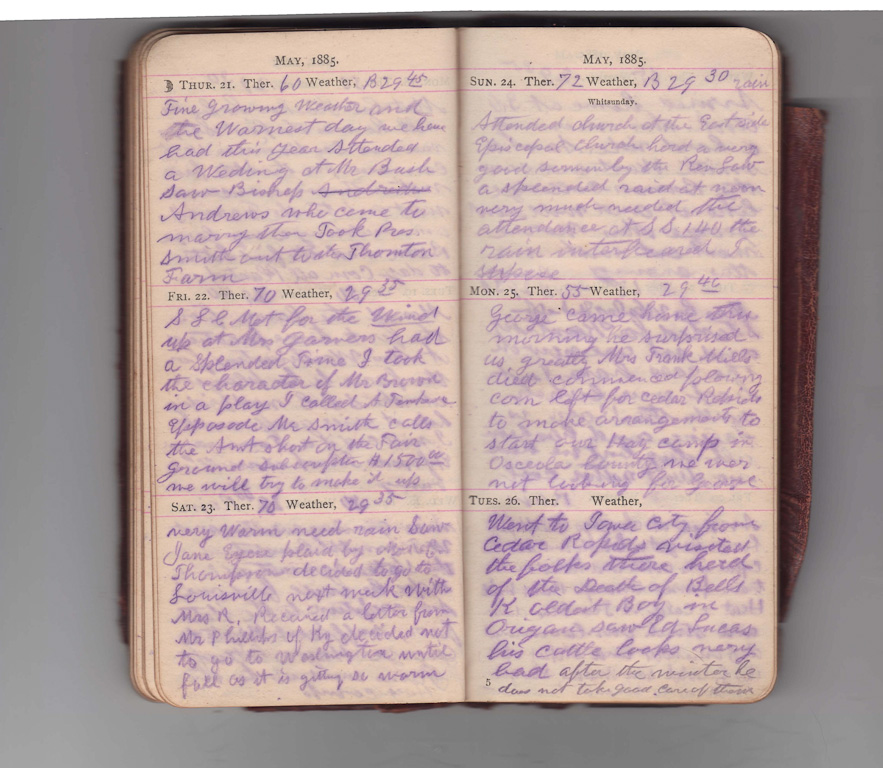 MAY, 1885.
THUR. 21. Ther. 60 Weather, B 29 45
Fine Growing Weather and
the Warmest day we have
had this year Attended
a Weding at Mr Bush
Saw Bishop
Andrews who came to
marry them Took Pres.
Smith out to the Thornton
Farm
FRI. 22. Ther. 70 Weather, 29 35
S S C Met for the Wind
up at Mrs Garvers had
a Splended Time I took
the character of Mr Brown
in a play I called A
Epposode Mr Smith calls
the Amt short on the Fair
Ground Subscription $1500 00
we will try to make it up
SAT. 23. Ther. 70 Weather, 29 35
very Warm need rain Saw
Jane Eyere plaid by
Thompson decided to go to
Louisville next week with
Mrs R, Received a letter from
Mr Phillips of Ky decided not
to go to Washington until
fall as it is getting so warm
MAY, 1885.
SUN. 24. Ther. 72 Weather, B 29 30 rain
Whitsunday.
Attended church at the East side
Episcopal church herd a very
good sermon by the Rev Law
a splended raid at noon
very much needed the
attendance at S S 140 the
rain interfeared I
supose
MON. 25. Ther. 55 Weather, 29 40
George came home this
morning he surprised
us greatly Mrs Frank Mills
died commenced folowing
corn left for cedar Rapids
to make arrangements to
start our Hay camp in
Osceola County we wer
not looking for George
TUES. 26. Ther. Weather,
Went to Iowa City from
Cedar Rapids visited
the folks there herd
of the Death of Bells
K oldest Boy in
Origan saw Ed Lucas
his cattle looks very
bad after the winter he
does not take good care of them
5